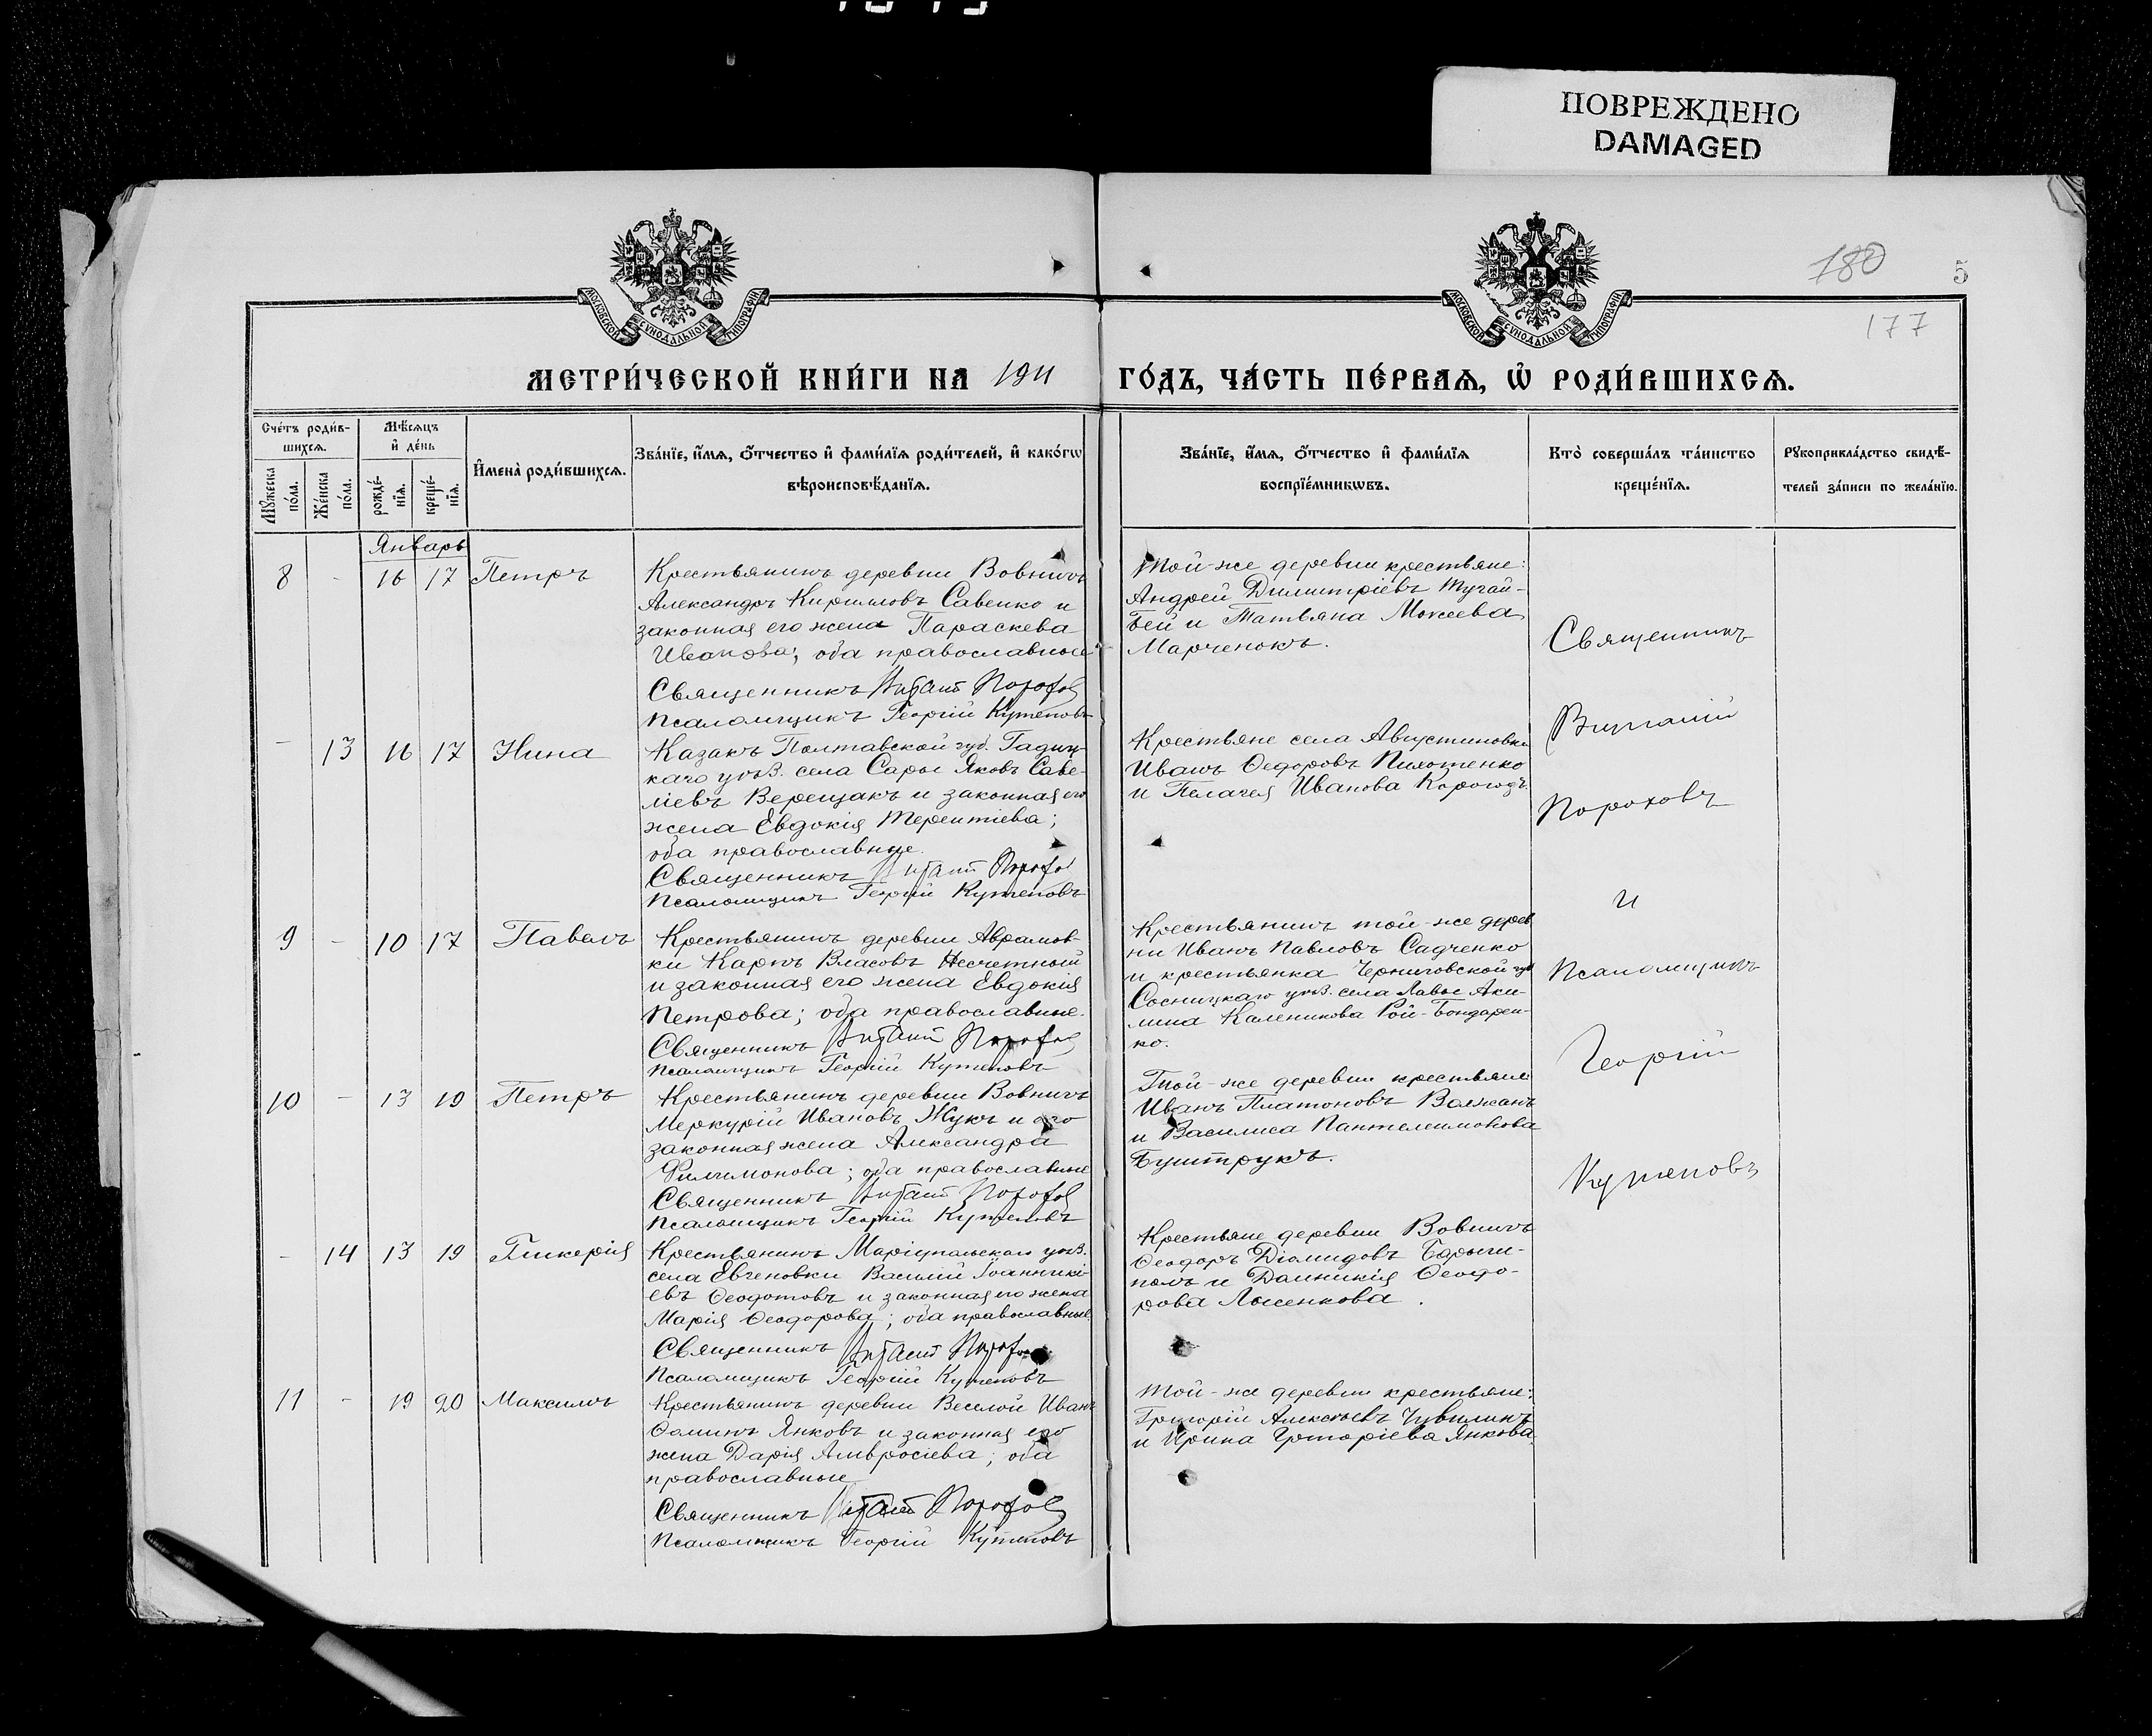 ПОВРЕЖДЕНО
DAMAGED
180
5
177
МОСКОВСКОЙ СѴНОДАЛЬНОЙ ТИПОГРАФІИ
МОСКОВСКОЙ СѴНОДАЛЬНОЙ ТИПОГРАФІИ
МЕТРИ́ЧЕСКОЙ КНИ́ГИ НА 1911 ГО́ДЪ, ЧА́СТЬ ПЕ́РВАѦ, Ѡ҆ РОДИ́ВШИХСѦ.
Сче́тъ роди́в-
шихсѧ.
Мѣ́сѧцъ
и҆ де́нь
Мꙋ́жеска
по́ла.
Же́нска
по́ла.
рожде́-
нїѧ.
креще́-
нїѧ.
И҆мена̀ роди́вшихсѧ.
Зва́нїе, и҆́мѧ, ѻ҆́тчество и҆ фами́лїѧ роди́телей, и҆ како́гѡ
вѣроисповѣ́данїѧ.
Зва́нїе, и҆́мѧ, ѻ҆́тчество и҆ фами́лїѧ
воспрїе́мникѡвъ.
Кто̀ соверша́лъ та́инство
креще́нїѧ.
Рꙋкоприкла́дство свидѣ́-
телей за́писи по жела́нїю.
Январь
8 - 16 17 Петръ
Крестьянинъ деревни Вовнигъ
Александръ Кирилловъ Савенко и
законная его жена Параскева
Иванова; оба православные
Священникъ Виталій Пороховъ
Псаломщикъ Георгій Кутеповъ
Той-же деревни крестьяне:
Андрей Димитріевъ Тугай-
Бей и Татьяна Мокеева
Марченокъ.
- 13 16 17 Нина
Казакъ Полтавской губ. Гадяч-
каго уѣз. села Сары Яковъ Саве-
ліевъ Верещакъ и законная его
жена Евдокія Терентіева;
оба православные.
Священникъ Виталій Пороховъ
Псаломщикъ Георгій Кутеповъ
Крестьяне села Августиновки
Иванъ Ѳедоровъ Пихотенко
и Пелагея Иванова Корогодъ.
9 - 10 17 Павелъ
Крестьянинъ деревни Аврамов-
ки Карпъ Власовъ Несчетный
и законная его жена Евдокія
Петрова; оба православные.
Священникъ Виталій Пороховъ
Псаломщикъ Георгій Кутеповъ
Крестьянинъ той-же дерев
ни Иванъ Павловъ Садченко
и крестьянка Черниговской губ
Сосницкаго уѣз. села Лавы Аки-
лина Каленикова Рой-Бондарен-
ко.
10 - 13 19 Петръ
Крестьянинъ деревни Вовнигъ
Меркурій Ивановъ Жукъ и его
законная жена Александра
Филимонова; оба православные
Священникъ Виталій Пороховъ
Псаломщикъ Георгій Кутеповъ
Той-же деревни крестьяне
Иванъ Платоновъ Волжанъ
и Василиса Пантелеимонова
Буштрукъ.
- 14 13 19 Гликерія
Крестьянинъ Маріупольскаго уѣз.
села Евгеновки Василій Іоанникі-
евъ Ѳеодотовъ и законная его жена
Марія Ѳеодорова; оба православные.
Священникъ Виталій Пороховъ
Псаломщикъ Георгій Кутеповъ
Крестьяне деревни Вовнигъ
Ѳеодоръ Діомидовъ
и Домникія Ѳеодо-
рова Лысенкова.
11 - 19 20 Максимъ
Крестьянинъ деревни Веселой Иванъ
Ѳоминъ Янковъ и законная его
жена Дарія Амвросіева; оба
православные
Священникъ Виталій Пороховъ
Псаломщикъ Георгій Кутеповъ
Той-же деревни крестьяне:
Григорій Алексѣевъ Чувилинъ
и Ирина Григоріева Янкова.
Священникъ
Виталій
Пороховъ
и
Псаломщикъ
Георгій
Кутеповъ